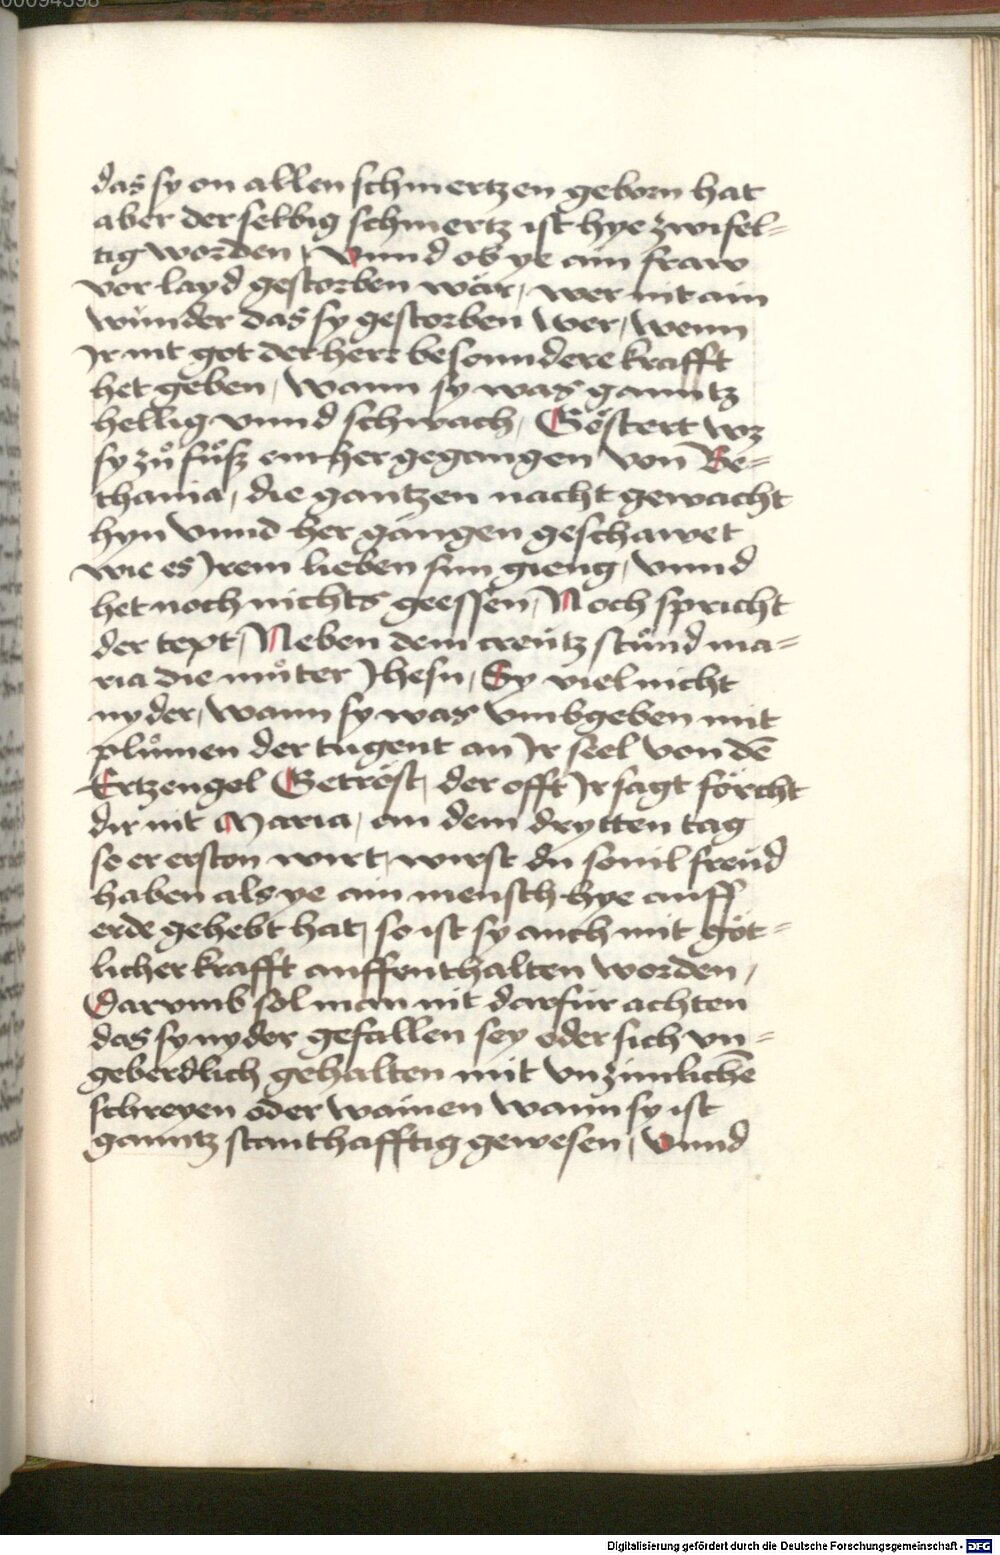 00094398
das sy on allen schmertzen geborn hat
aber der selbig schmertz ist hye zwifel-
tig worden, Vnnd ob ye ain fraw
vor layd gestorben wär, wer nit ain
wunder das sy gestorben wer, wenn
Jr nit got der herr besonndere krafft
het geben, Wann sy was ganntz
hellig vnnd schwach, Göstert wz
sy zů fůsz einher gegangen von Be-
thania, die gantzen nacht gewacht
hyn vnnd her gangen geschawet
wie es Jrem lieben sun gieng, vnnd
het noch nichts geessen, Noch spricht
der text, Neben dem creütz stůnd ma-
ria die můter Jhesu, Sy viel nicht
nyder, wann sy was vmbgeben mit
plůmen der tugent an Jr seel von dē
Ertzengel Getröst, der offt Jr sagt förcht
dir nit Maria, an dem drytten tag
so er erston wirt, wirst du souil freüd
haben als ye ain mensch hye auff
erde gehebt hat, so ist sy auch mit göt-
licher krafft auffenthalten worden,
Darvmb sol man nit darfür achten
das sy nyder gefallen sey oder sich vn-
geberdlich gehalten mit vnzimlichē
schreyen oder wainen wann sy ist
ganntz stanthafftig gewesen, Vnnd
Digitalisierung gefördert durch die Deutsche Forschungsgemeinschaft - DFG